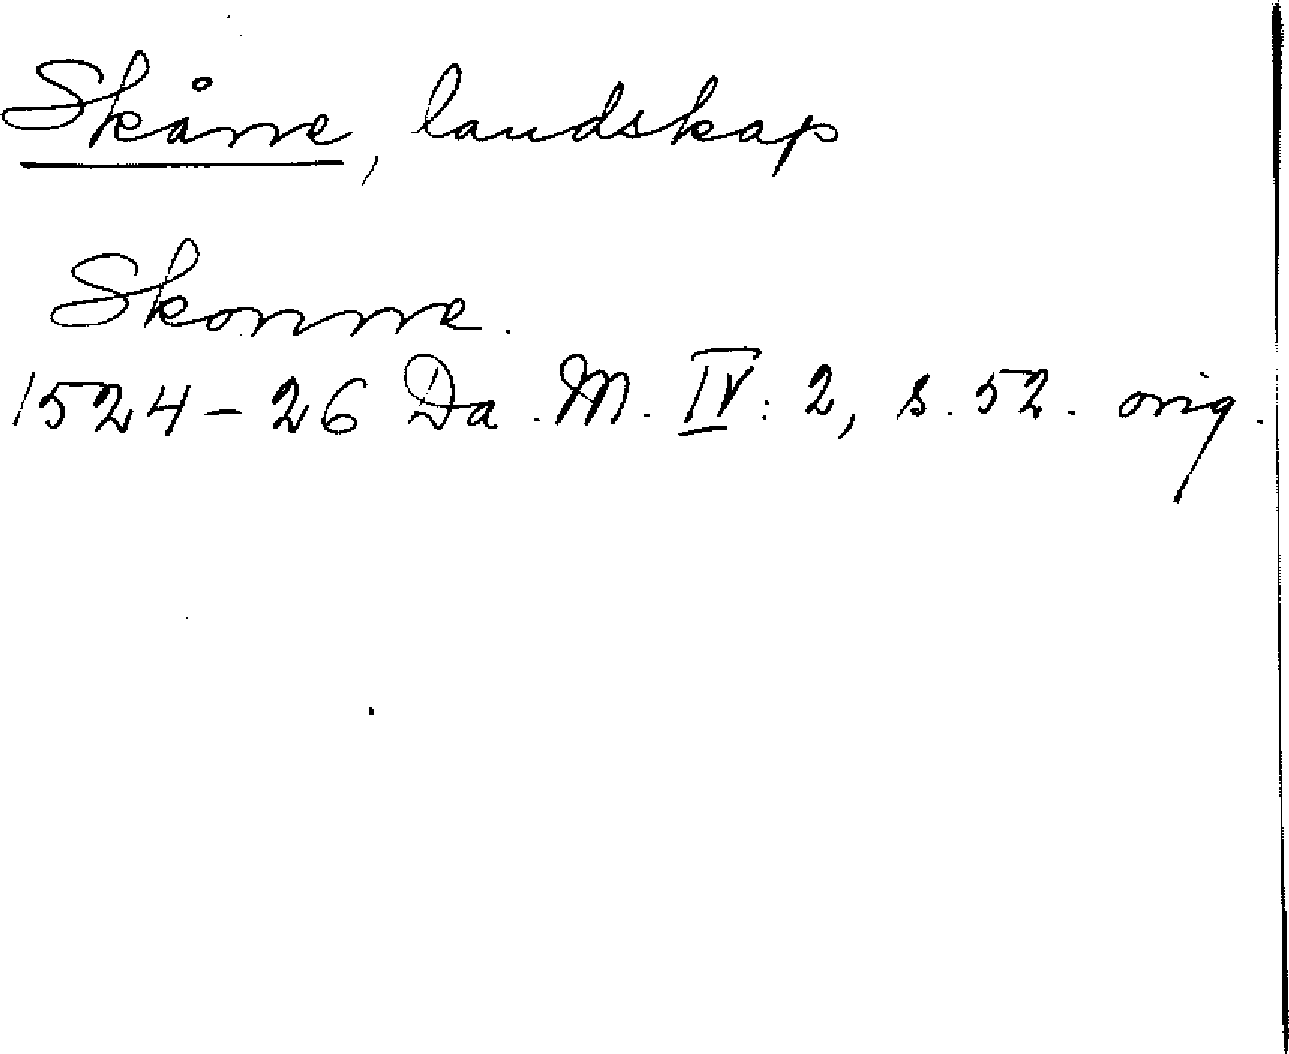 Skåne, landskap
Skonne.
1524-26 Da. M. IV: 2, s. 52. orig.